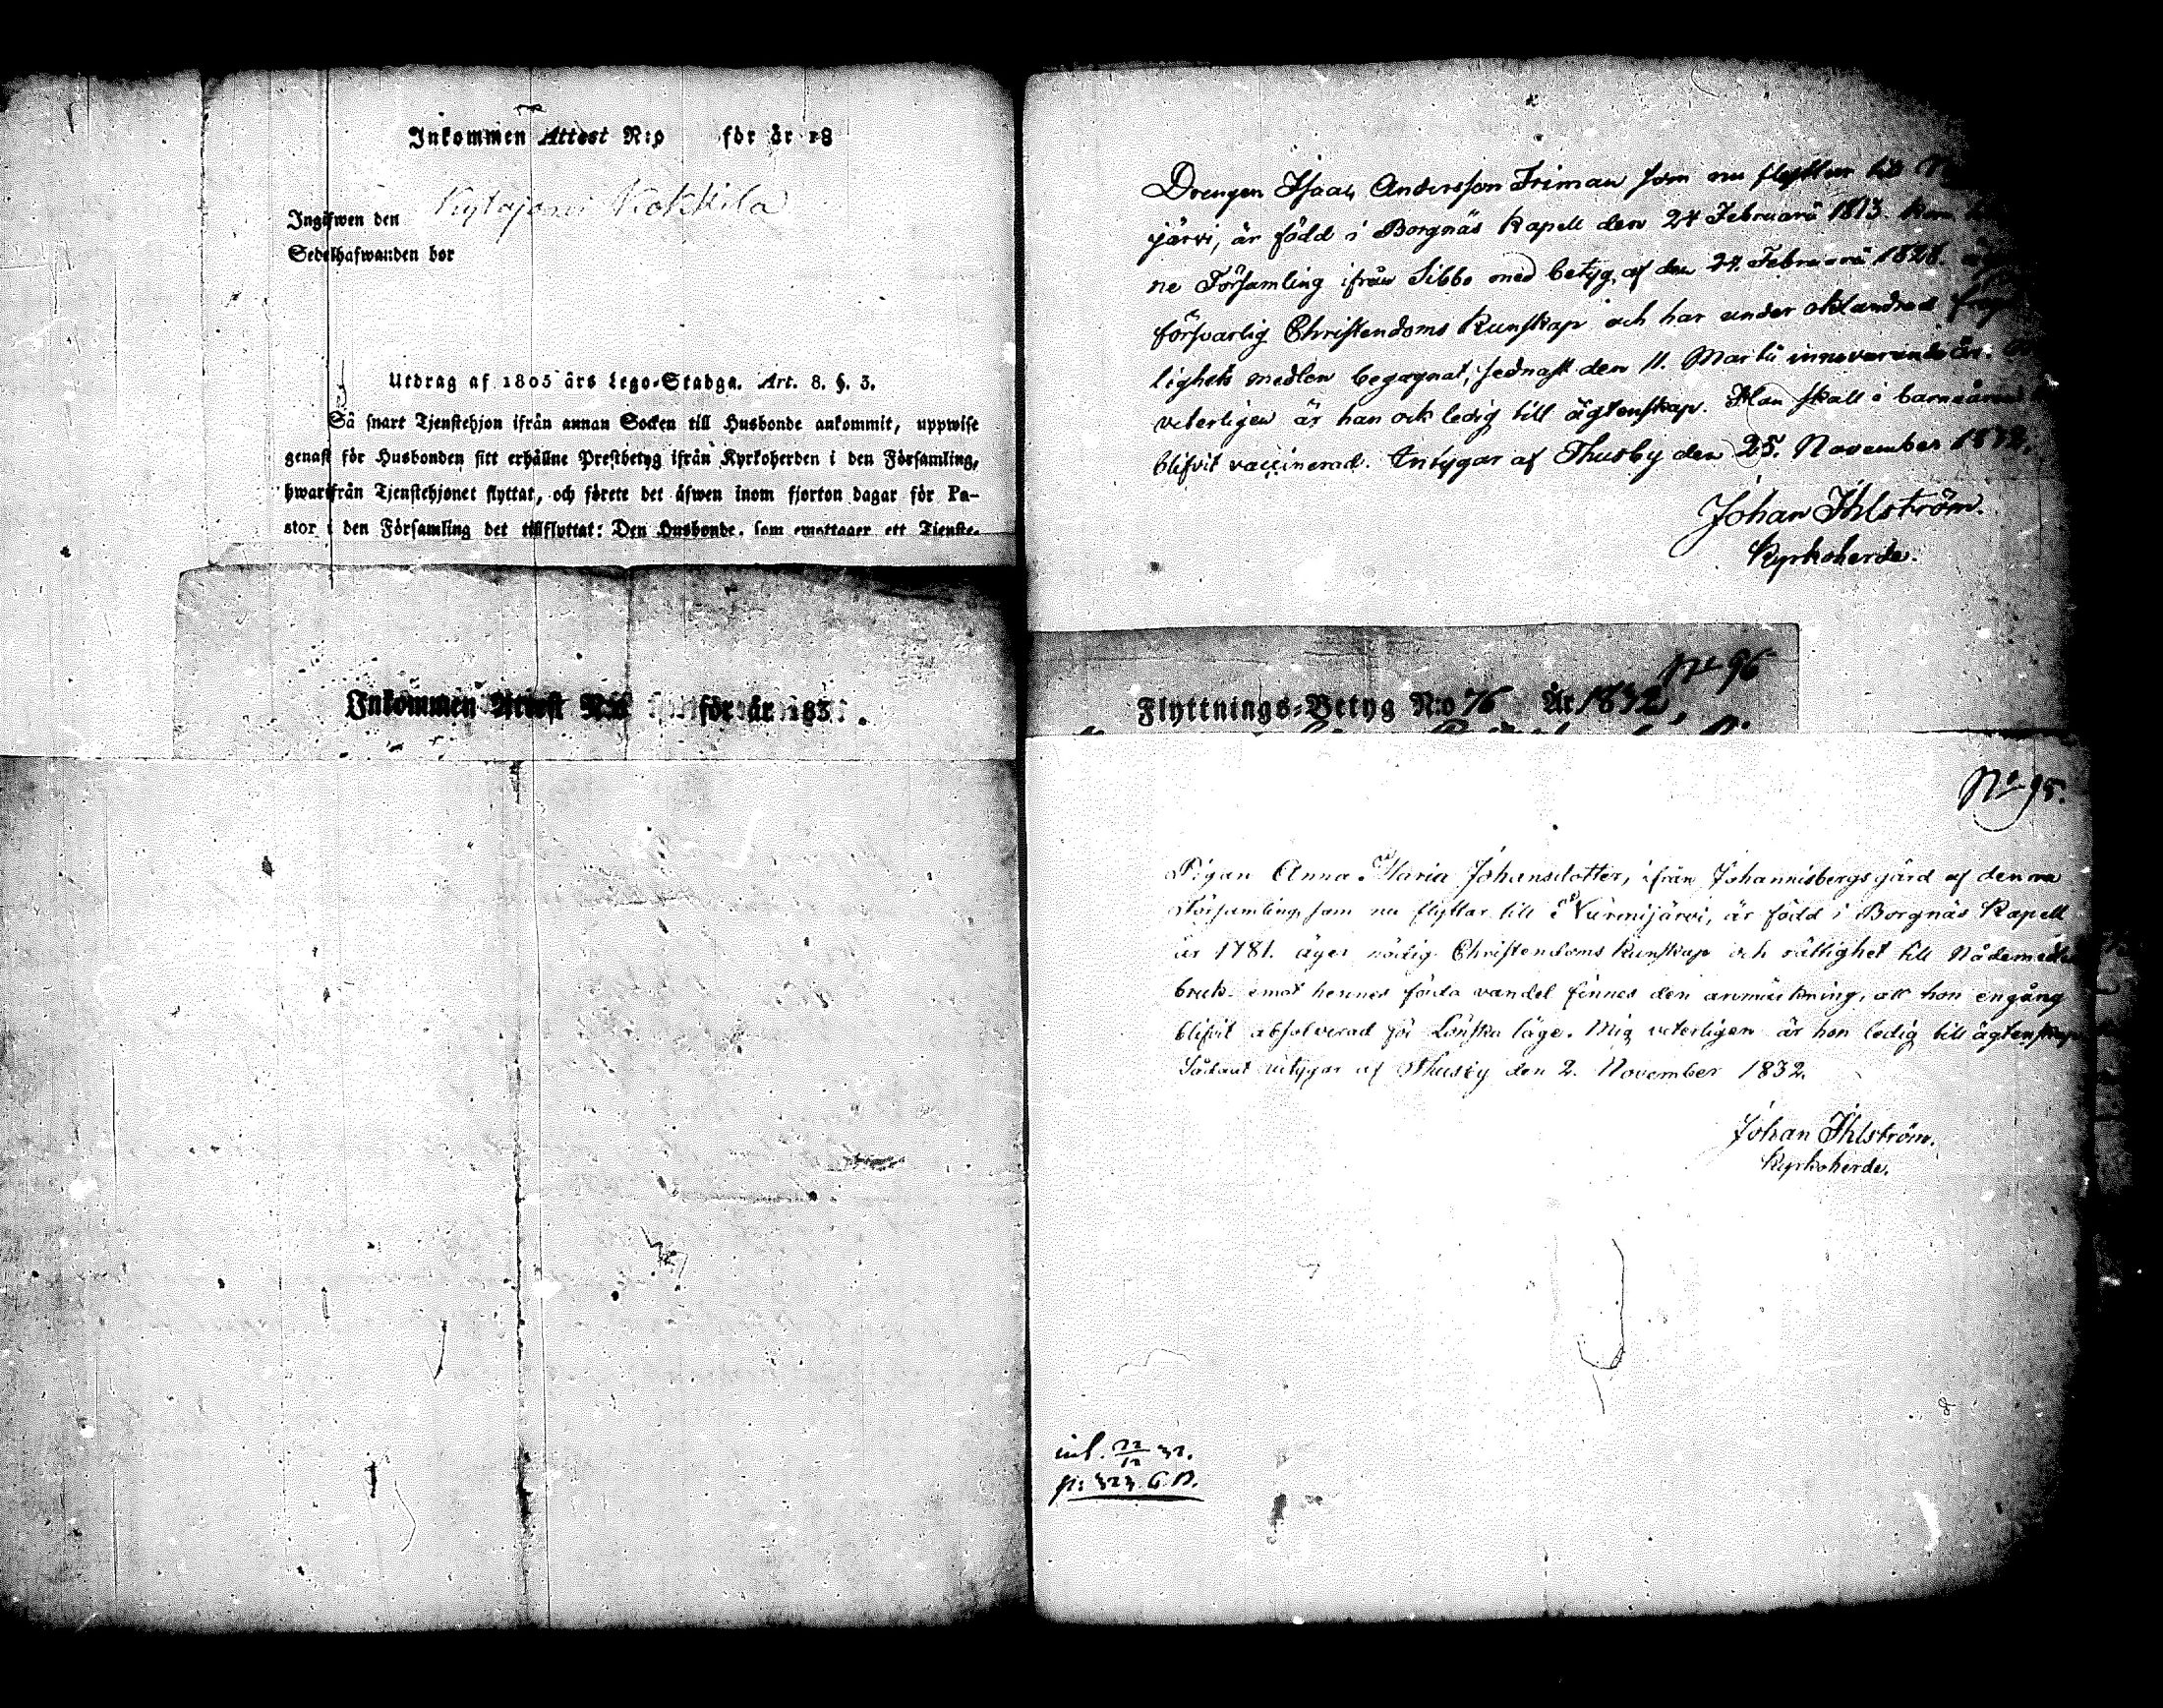 Inkommen Attest N:o för år 18
Kytajoki Kokkila
Ingifwen den
Sedelhafwanden bor
Utdrag af 1805 års Lego-Stadga. Art. 8. §. 3.
Så snart Tjenstehjon ifrån annan Socken till Husbonde ankommit, uppwise
genast för Husbonden sitt erhållne Prestbetyg ifrån Kyrkoherden i den Församling,
hwarifrån Tjenstehjonet flyttat, och förete det äfwen inom fjorton dagar för Pa-
stor i den Församling det tillflyttat: Den Husbonde, som emottager ett Tienste-
Inkommen Attest N:o för år 183 .
Drengen Isaac Andersson Friman som nu flyttar till
järvi, är född i Borgnäs Kapell den 24 Februarii 1813. kom
ne Församling ifrån Sibbo med betyg af den 24. Februarii 1828.
försvarlig Christendoms Kunskap och har under oklandrad
lighets medlen begagnat, sednast den 11. Martii innevarande år.
veterligen är han ock ledig till ägtenskap. Han skall i barnaåren
blifvit vaccinerad. Intygar af Thusby den 25. November 1832.
Johan Ihlström.
Kyrkoherde.
No 96
Flyttnings-Betyg N:o 76 År 1832,
No 95.
Pigan Anna Maria Johansdotter, ifrån Johannisbergs gård af denna
Församling, som nu flyttar till Nurmijärvi, är född i Borgnäs Kapell
år 1781. äger nödig Christendoms kunskap och rättighet till Nådemedlens
bruk. emot hennes förda vandel finnes den anmärkning, att hon engång
blifvit absolverad för Lönska läge. Mig veterligen är hon ledig till ägtenskap
Sådant intygar af Thusby den 2. November 1832.
Johan Ihlström.
Kyrkoherde.
inl. 22/12 32.
p: 323. G.B.